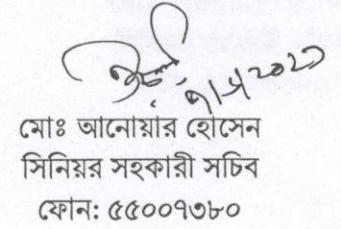 মোঃ আনোয়ার হোসেন
সিনিয়র সহকারী সচিব
ফোন: ৫৫০০৭৩৮০